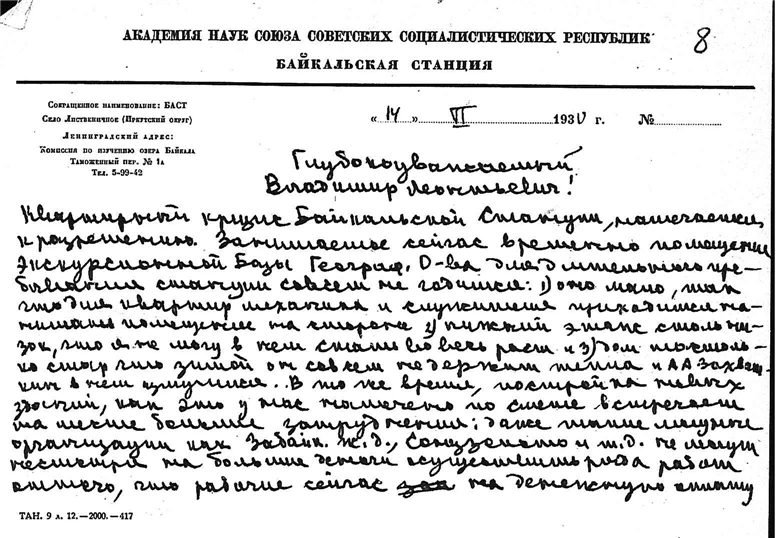 АКАДЕМИЯ НАУК СОЮЗА СОВЕТСКИХ СОЦИАЛИСТИЧЕСКИХ РЕСПУБЛИК
8
БАЙКАЛЬСКАЯ СТАНЦИЯ
Сокращенное наименование: БАСТ
Село Лиственичное (Иркутский округ)
Ленинградский адрес:
Комиссия по изучению озера Байкала
Таможенный пер. № 1А
Тел. 5-99-42
« 14 » VI 193 г. №
Глубокоуважаемый
Владимир Леонтьевич!
Квартирный кризис Байкальской Станции, намечается
к разрешению. Занимаемое сейчас временно помещение
Экскурсионной Базы Географ. О-ва для длительного пре-
бывания станции совсем не годится: 1) оно мало, так
что для квартир механика и служителя приходится на-
нимать помещение на стороне 2) нижний этаж столь ни-
зок, что я не могу в нем стать во весь рост и 3) дом настоль-
ко стар что зимой он совсем не держит тепла и А А Захват-
кин в нем измучился. В то же время, постройка новых
зданий, как это у нас намечено по смете встречает
на месте большие затруднения: даже такие мощные
организации как Забайк. ж.д., Союззолото и т.д. не могут
несмотря на большие деньги осуществить ряда работ
оттого, что рабочие сейчас на денежную оплату
ТАН. 9 л. 12.—2000.—417